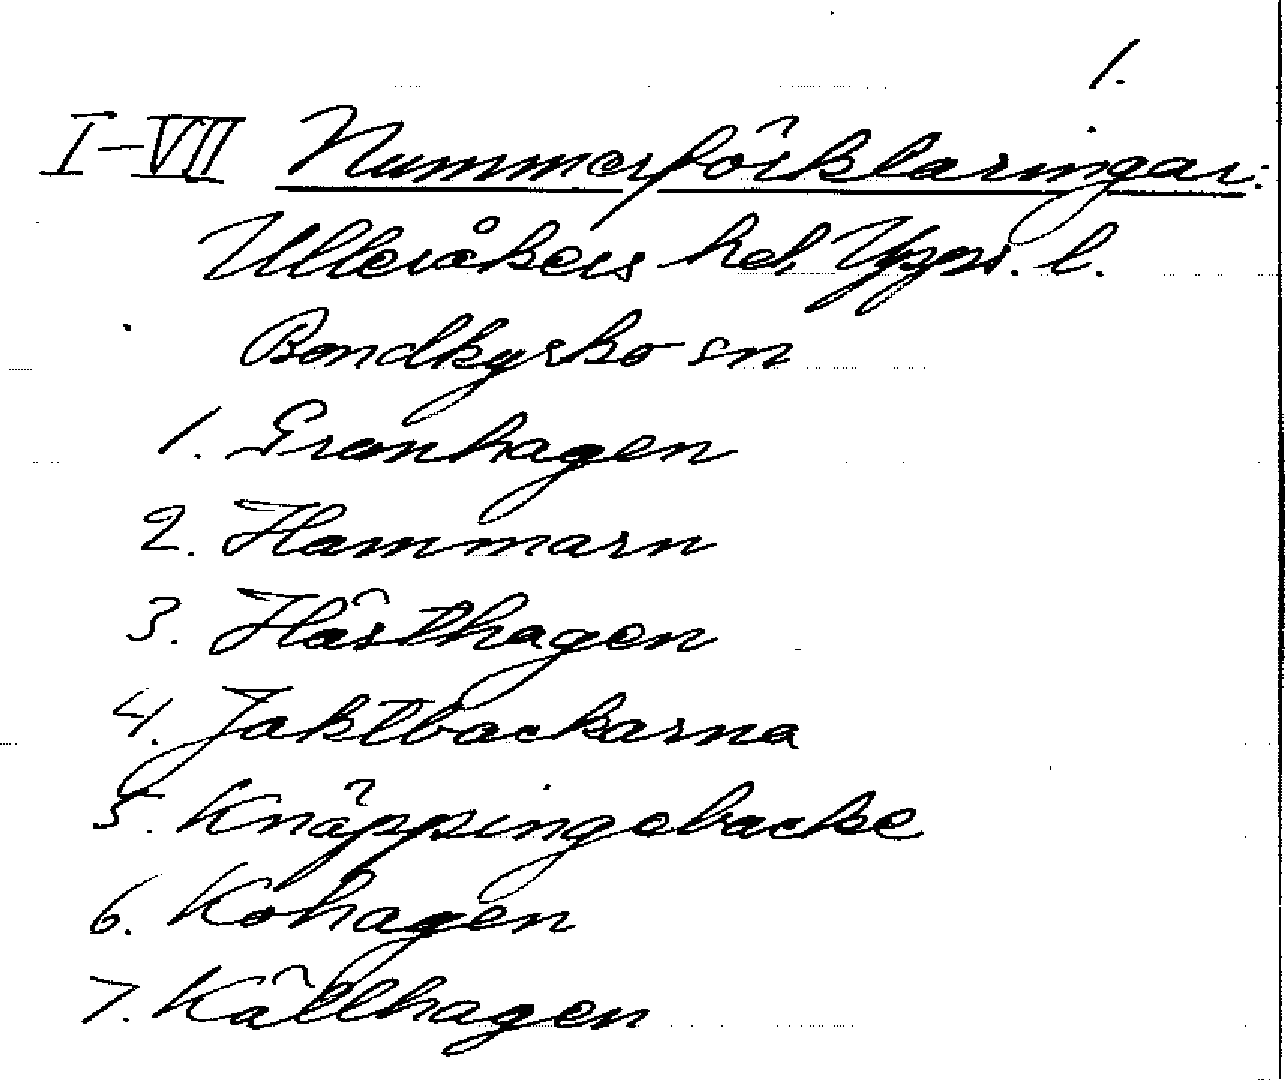 1.
I-VII Nummerförklaringar:
Ulleråkers hd, Upps. l.
Bondkyrko sn
1. Granhagen
2. Hammarn
3. Hästhagen
4. Jaktbackarna
5. Knäppingebacke
6. Kohagen
7. Källhagen